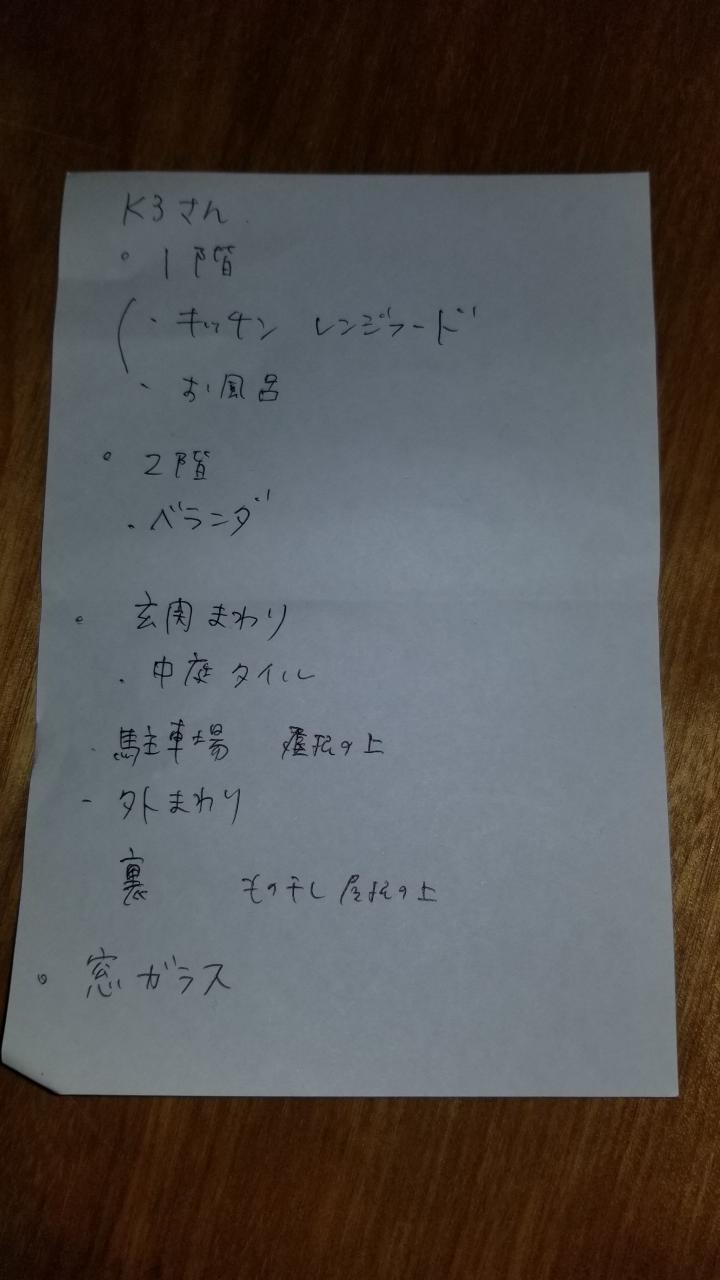 K3さん
。1階
・キッチン レンジフード
・お風呂
。2階
・ベランダ
。玄関まわり
・中庭タイル
・駐車場 屋根の上
- 外まわり
裏 もの干し 屋根の上
。窓ガラス